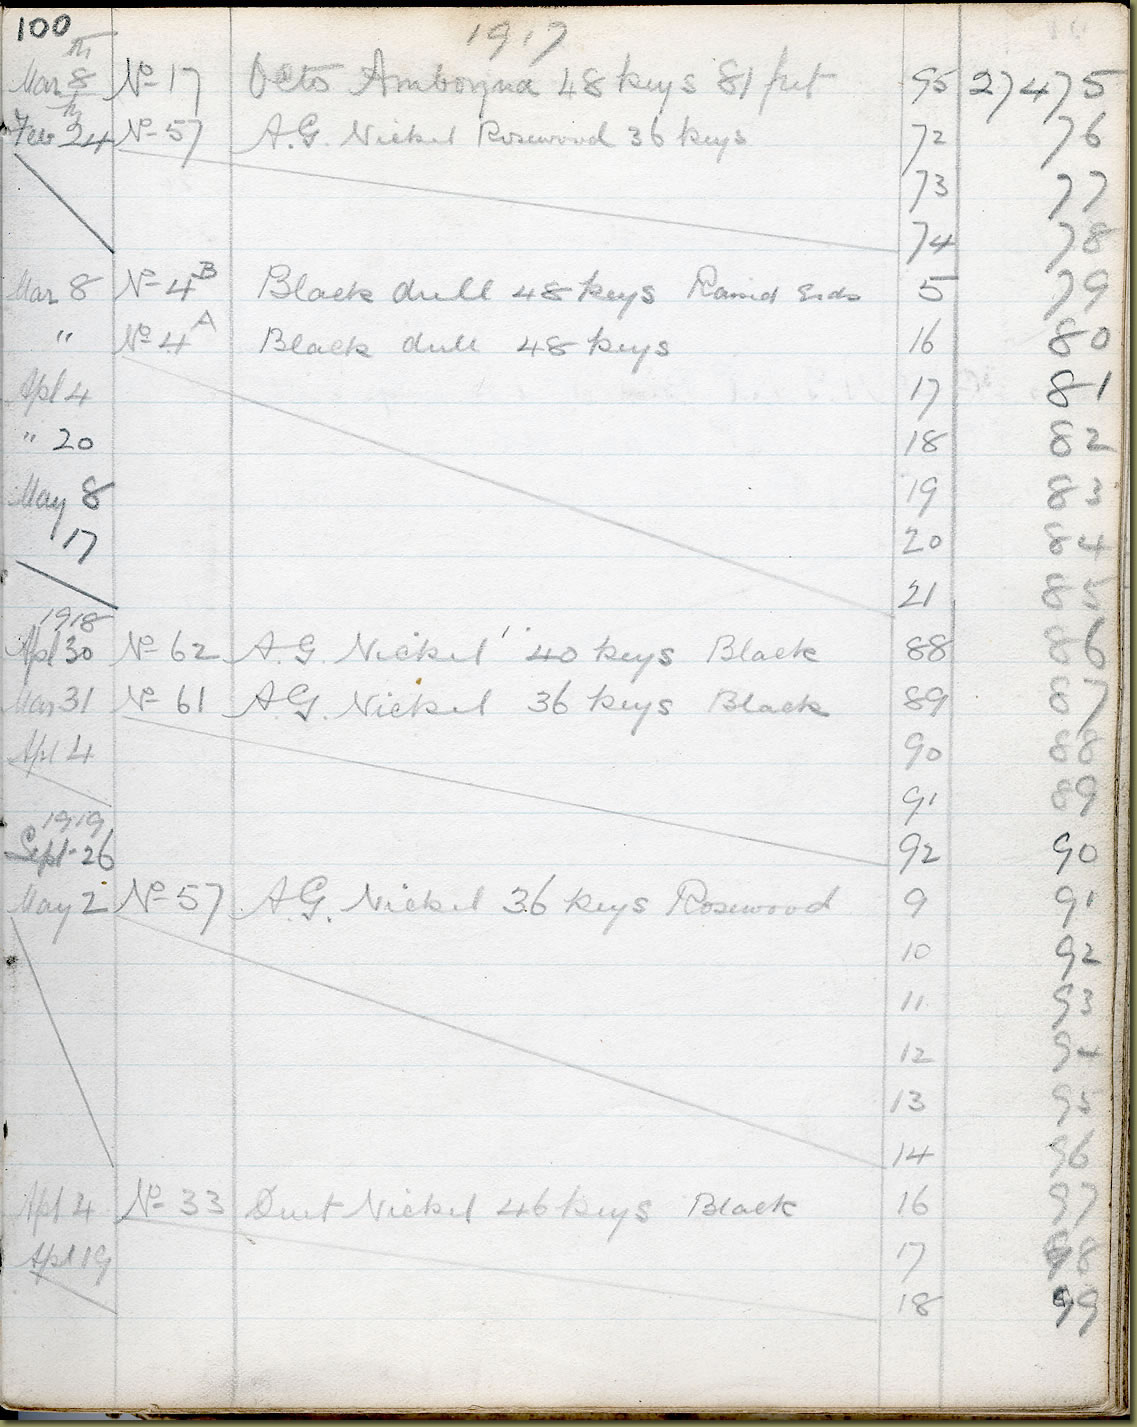 100
1917
Mar 8th No 17 Octo Amboyna 48 keys 81 fret 95 27475
Feb 24th No 57 A.G. Nickel Rosewood 36 keys 72 76
73 77
74 78
Mar 8 No 4B Black dull 48 keys Raised Ends 5 79
" No 4A Black dull 48 keys 16 80
Apl 4 17 81
" 20 18 82
May 8 19 83
17 20 84
21 85
1918
Apl 30 No 62 A.G. Nickel 40 keys Black 88 86
Mar 31 No 61 A.G. Nickel 36 keys Black 89 87
Apl 4 90 88
91 89
1919
Sept 26 92 90
May 2 No 57 A.G. Nickel 36 keys Rosewood 9 91
10 92
11 93
12 94
13 95
14 96
Apl 4 No 33 Duet Nickel 46 keys Black 16 97
Apl 19 17 98
18 99